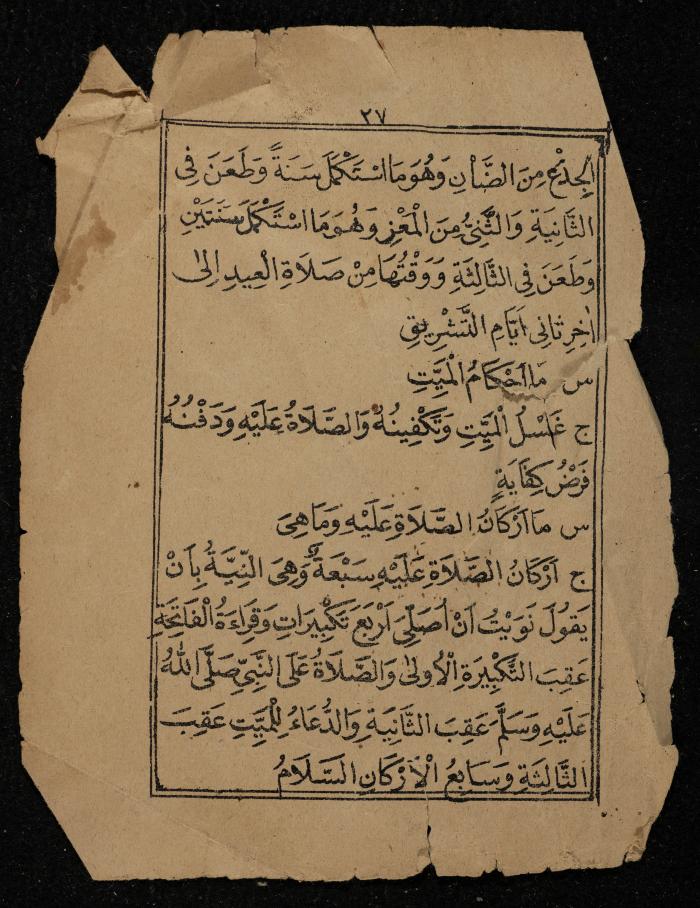 ٢٧
الجِذْعُ مِنَ الضَّاْنِ وَهُوَ مَا اسْتَكْمَلَ سَنَةً وَطَعَنَ فِى
الثَّانِيَةِ وَالثَّنِىُّ مِنَ الْمَعْزِ وَهُوَ مَا اسْتَكْمَلَ سَنَتَيْنِ
وَطَعَنَ فِى الثَّالِثَةِ وَوَقْتُهَا مِنْ صَلَاةِ الْعِيدِ اِلىٰ
اٰخِرِ ثَانِى اَيَّامِ التَّشْرِيقِ
س مَا اَحْكَامُ الْمَيِّتِ
ج غَسْلُ الْمَيِّتِ وَتَكْفِينُهُ وَالصَّلَاةُ عَلَيْهِ وَدَفْنُهُ
فَرْضُ كِفَايَةٍ
س مَا اَرْكَانُ الصَّلَاةِ عَلَيْهِ وَمَا هِىَ
ج اَرْكَانُ الصَّلَاةِ عَلَيْهِ سَبْعَةٌ وَهِىَ النِّيَّةُ بِاَنْ
يَقُولَ نَوَيْتُ اَنْ اُصَلِّىَ اَرْبَعَ تَكْبِيرَاتٍ وَقِرَاءَةُ الْفَاتِحَةِ
عَقِبَ التَّكْبِيرَةِ الْاُولىٰ وَالصَّلَاةُ عَلَى النَّبِىِّ صَلَّى اللهُ
عَلَيْهِ وَسَلَّمَ عَقِبَ الثَّانِيَةِ وَالدُّعَاءُ لِلْمَيِّتِ عَقِبَ
الثَّالِثَةِ وَسَابِعُ الْاَرْكَانِ السَّلَامُ